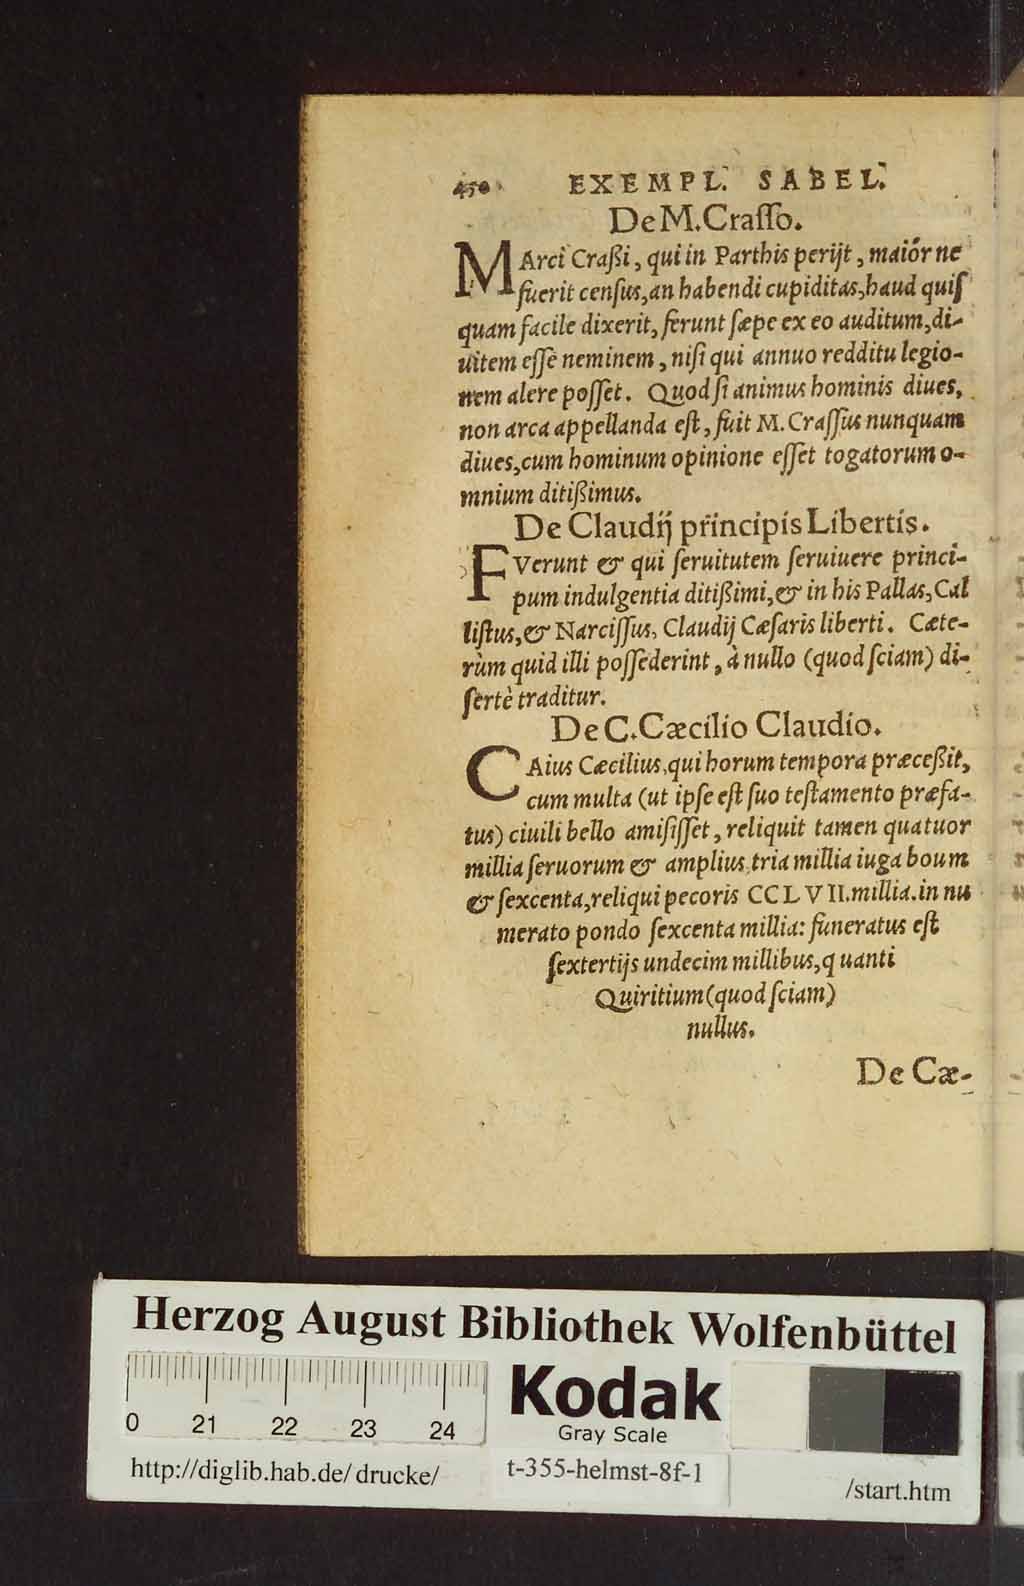 450 EXEMPL. SABEL.
De M. Craſſo.
MArci Craßi, qui in Parthis perijt, maiór ne
fuerit cenſus, an habendi cupiditas, haud quiſ
quam facile dixerit, ferunt ſæpe ex eo auditum, di-
uitem eſſe neminem, niſi qui annuo redditu legio-
nem alere poſſet. Quod ſi animus hominis diues,
non arca appellanda eſt, fuit M. Craſſus nunquam
diues, cum hominum opinione eſſet togatorum o-
mnium ditißimus.
De Claudij principis Libertis.
FVerunt & qui ſeruitutem ſeruiuere princi-
pum indulgentia ditißimi, & in his Pallas, Cal
liſtus, & Narciſſus, Claudij Cæſaris liberti. Cæte-
rùm quid illi poſſederint, à nullo (quod ſciam) di-
ſertè traditur.
De C. Cæcilio Claudio.
CAius Cæcilius, qui horum tempora præceßit,
cum multa (ut ipſe eſt ſuo teſtamento præfa-
tus) ciuili bello amiſiſſet, reliquit tamen quatuor
millia ſeruorum & amplius tria millia iuga boum
& ſexcenta, reliqui pecoris CCLVII. millia. in nu
merato pondo ſexcenta millia: funeratus eſt
ſextertijs undecim millibus, quanti
Quiritium (quod ſciam)
nullus.
De Cæ-
Herzog August Bibliothek Wolfenbüttel
0 21 22 23 24
Kodak
Gray Scale
http://diglib.hab.de/drucke/ t-355-helmst-8f-1 /start.htm